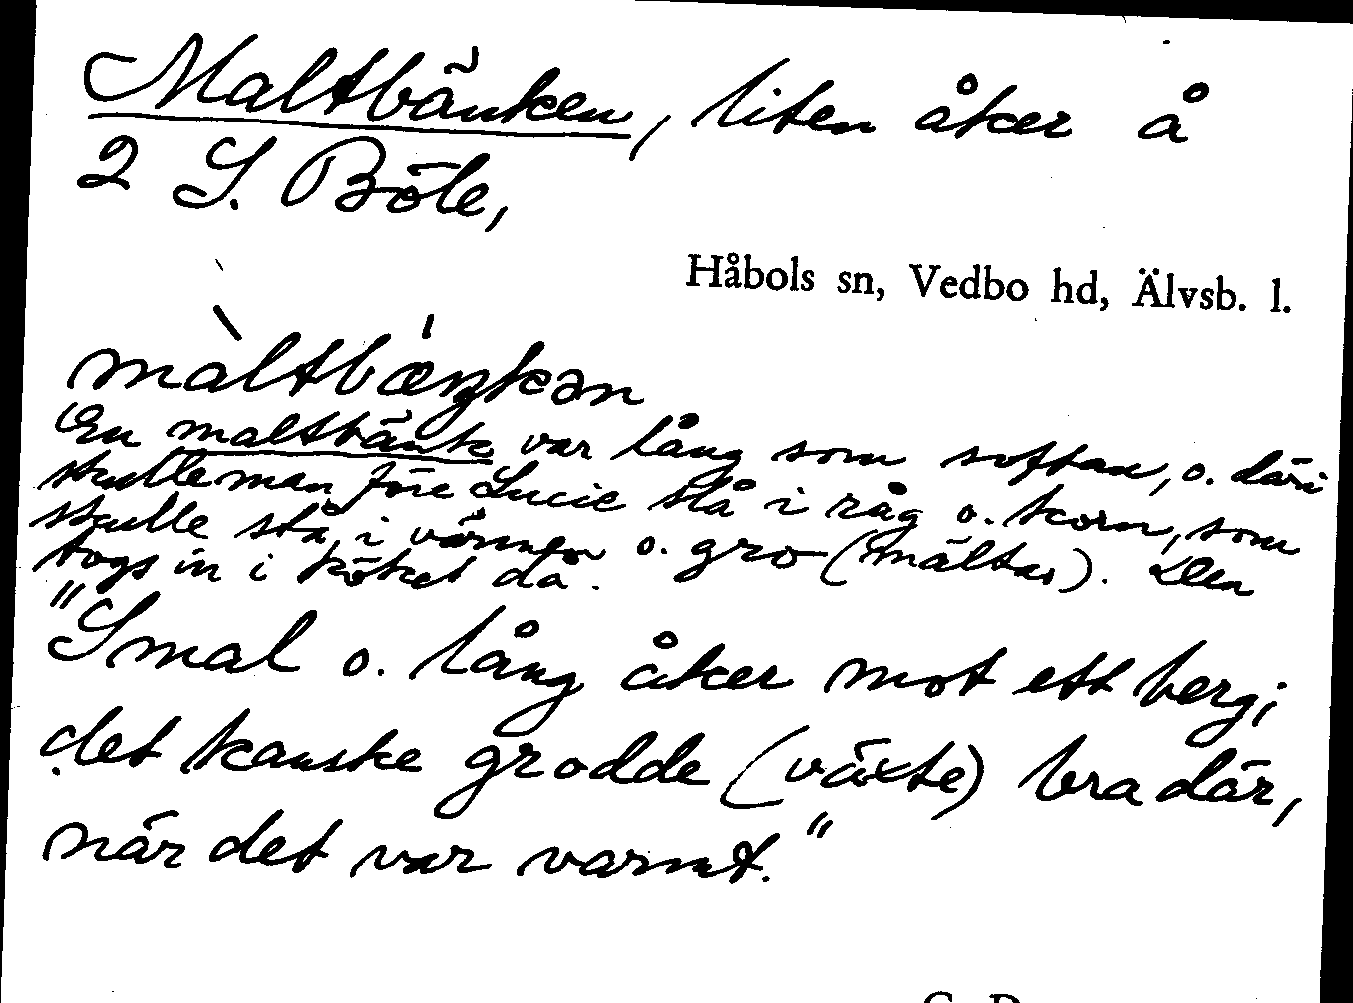 Maltbänken, liten åker å
2 S. Böle,
Håbols sn, Vedbo hd, Älvsb. l.
màltbæ̀ŋkən
En maltbänk var lång som soffan, o. däri
skulle man före Lucie slå i råg o. korn, som
skulle stå i värmen o. gro (mältas). Den
togs in i köket då.
"Smal o. lång åker mot ett berg;
det kanske grodde (växte) bra där,
när det var varmt."